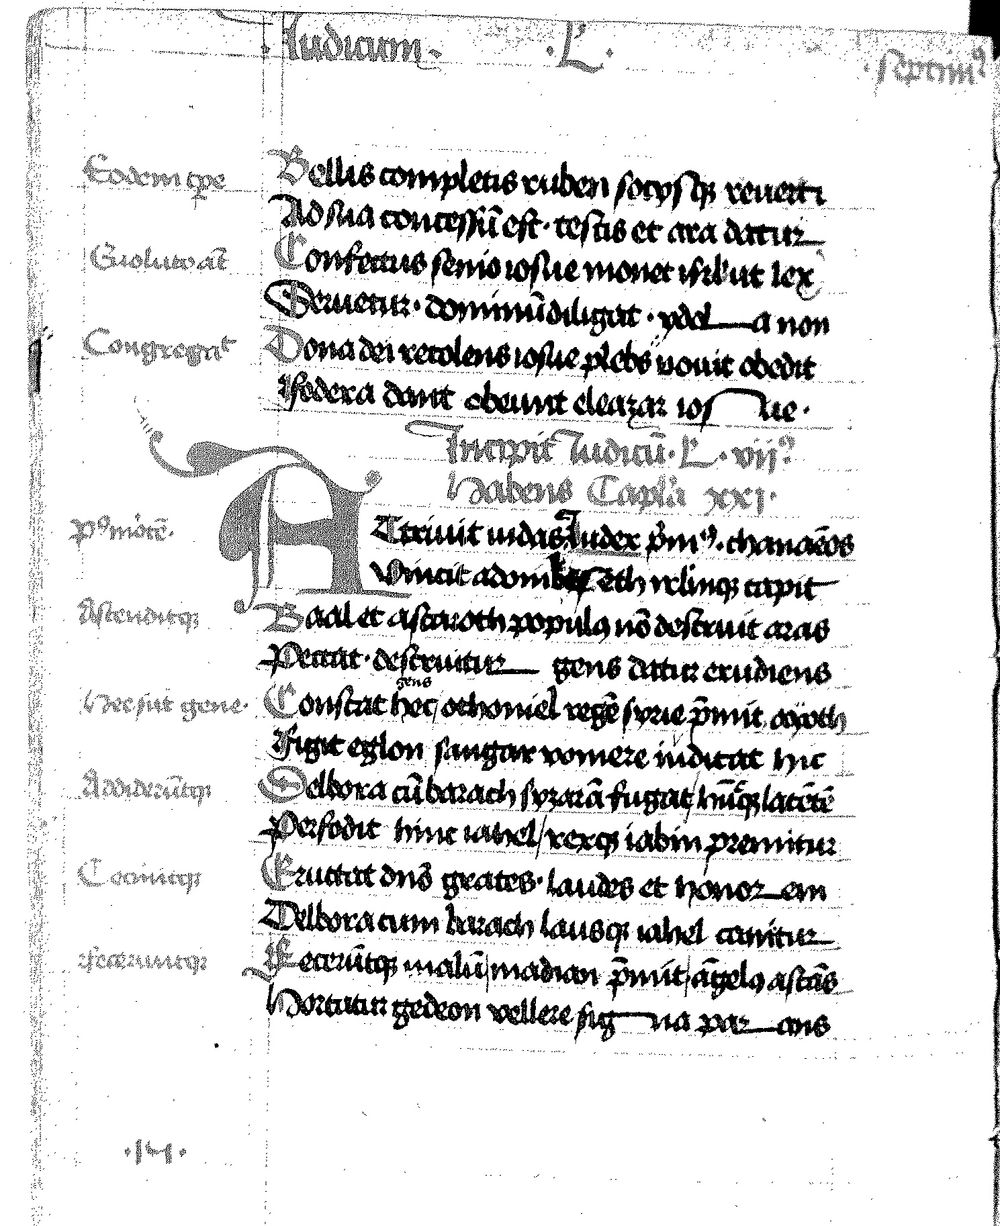 Iudicum · L · septim⁹
Eodem tp̄e
Bellis completis ruben socysq; reuerti
Ad sua concessū est · testis et ara datur
Euoluto aūt
Confectus senio iosue monet isrl̄ ut lex
Seruetur · dominū diligat · ydola non
Congregat
Dona dei recolens iosue plebs vouit obedit
Federa dant obeunt eleazar iosue ·
Incipit Iudicū · L · vij⁹
Habens Capl̄a xxj ·
P⁹ mortē ·
Attriuit iudas Iudex p̄m⁹ · chanaēos
Vincit adoni eth relinq; capit
Ascenditq;
Baal et astaroth popul⁹ nō destruit aras
Peccat · destruitur gens datur erudiens
gens
Hec sūt gene ·
Constat hec othoniel regē syrie p̄mit aoyoth
Figit eglon sangar vomere iudicat hic
Addiderūtq;
Delbora cū barach syzarā fugat hūcq; latētē
Perfodit hinc iahel rexq; iabin premitur
Cecinitq;
Eructat dnō grates · laudes et honorem
Delbora cum barach lausq; iahel canitur
Feceruntq;
Fecerūtq; malū madian p̄mit āgel⁹ astās
Hortatur gedeon vellere signa parans
· 14 ·